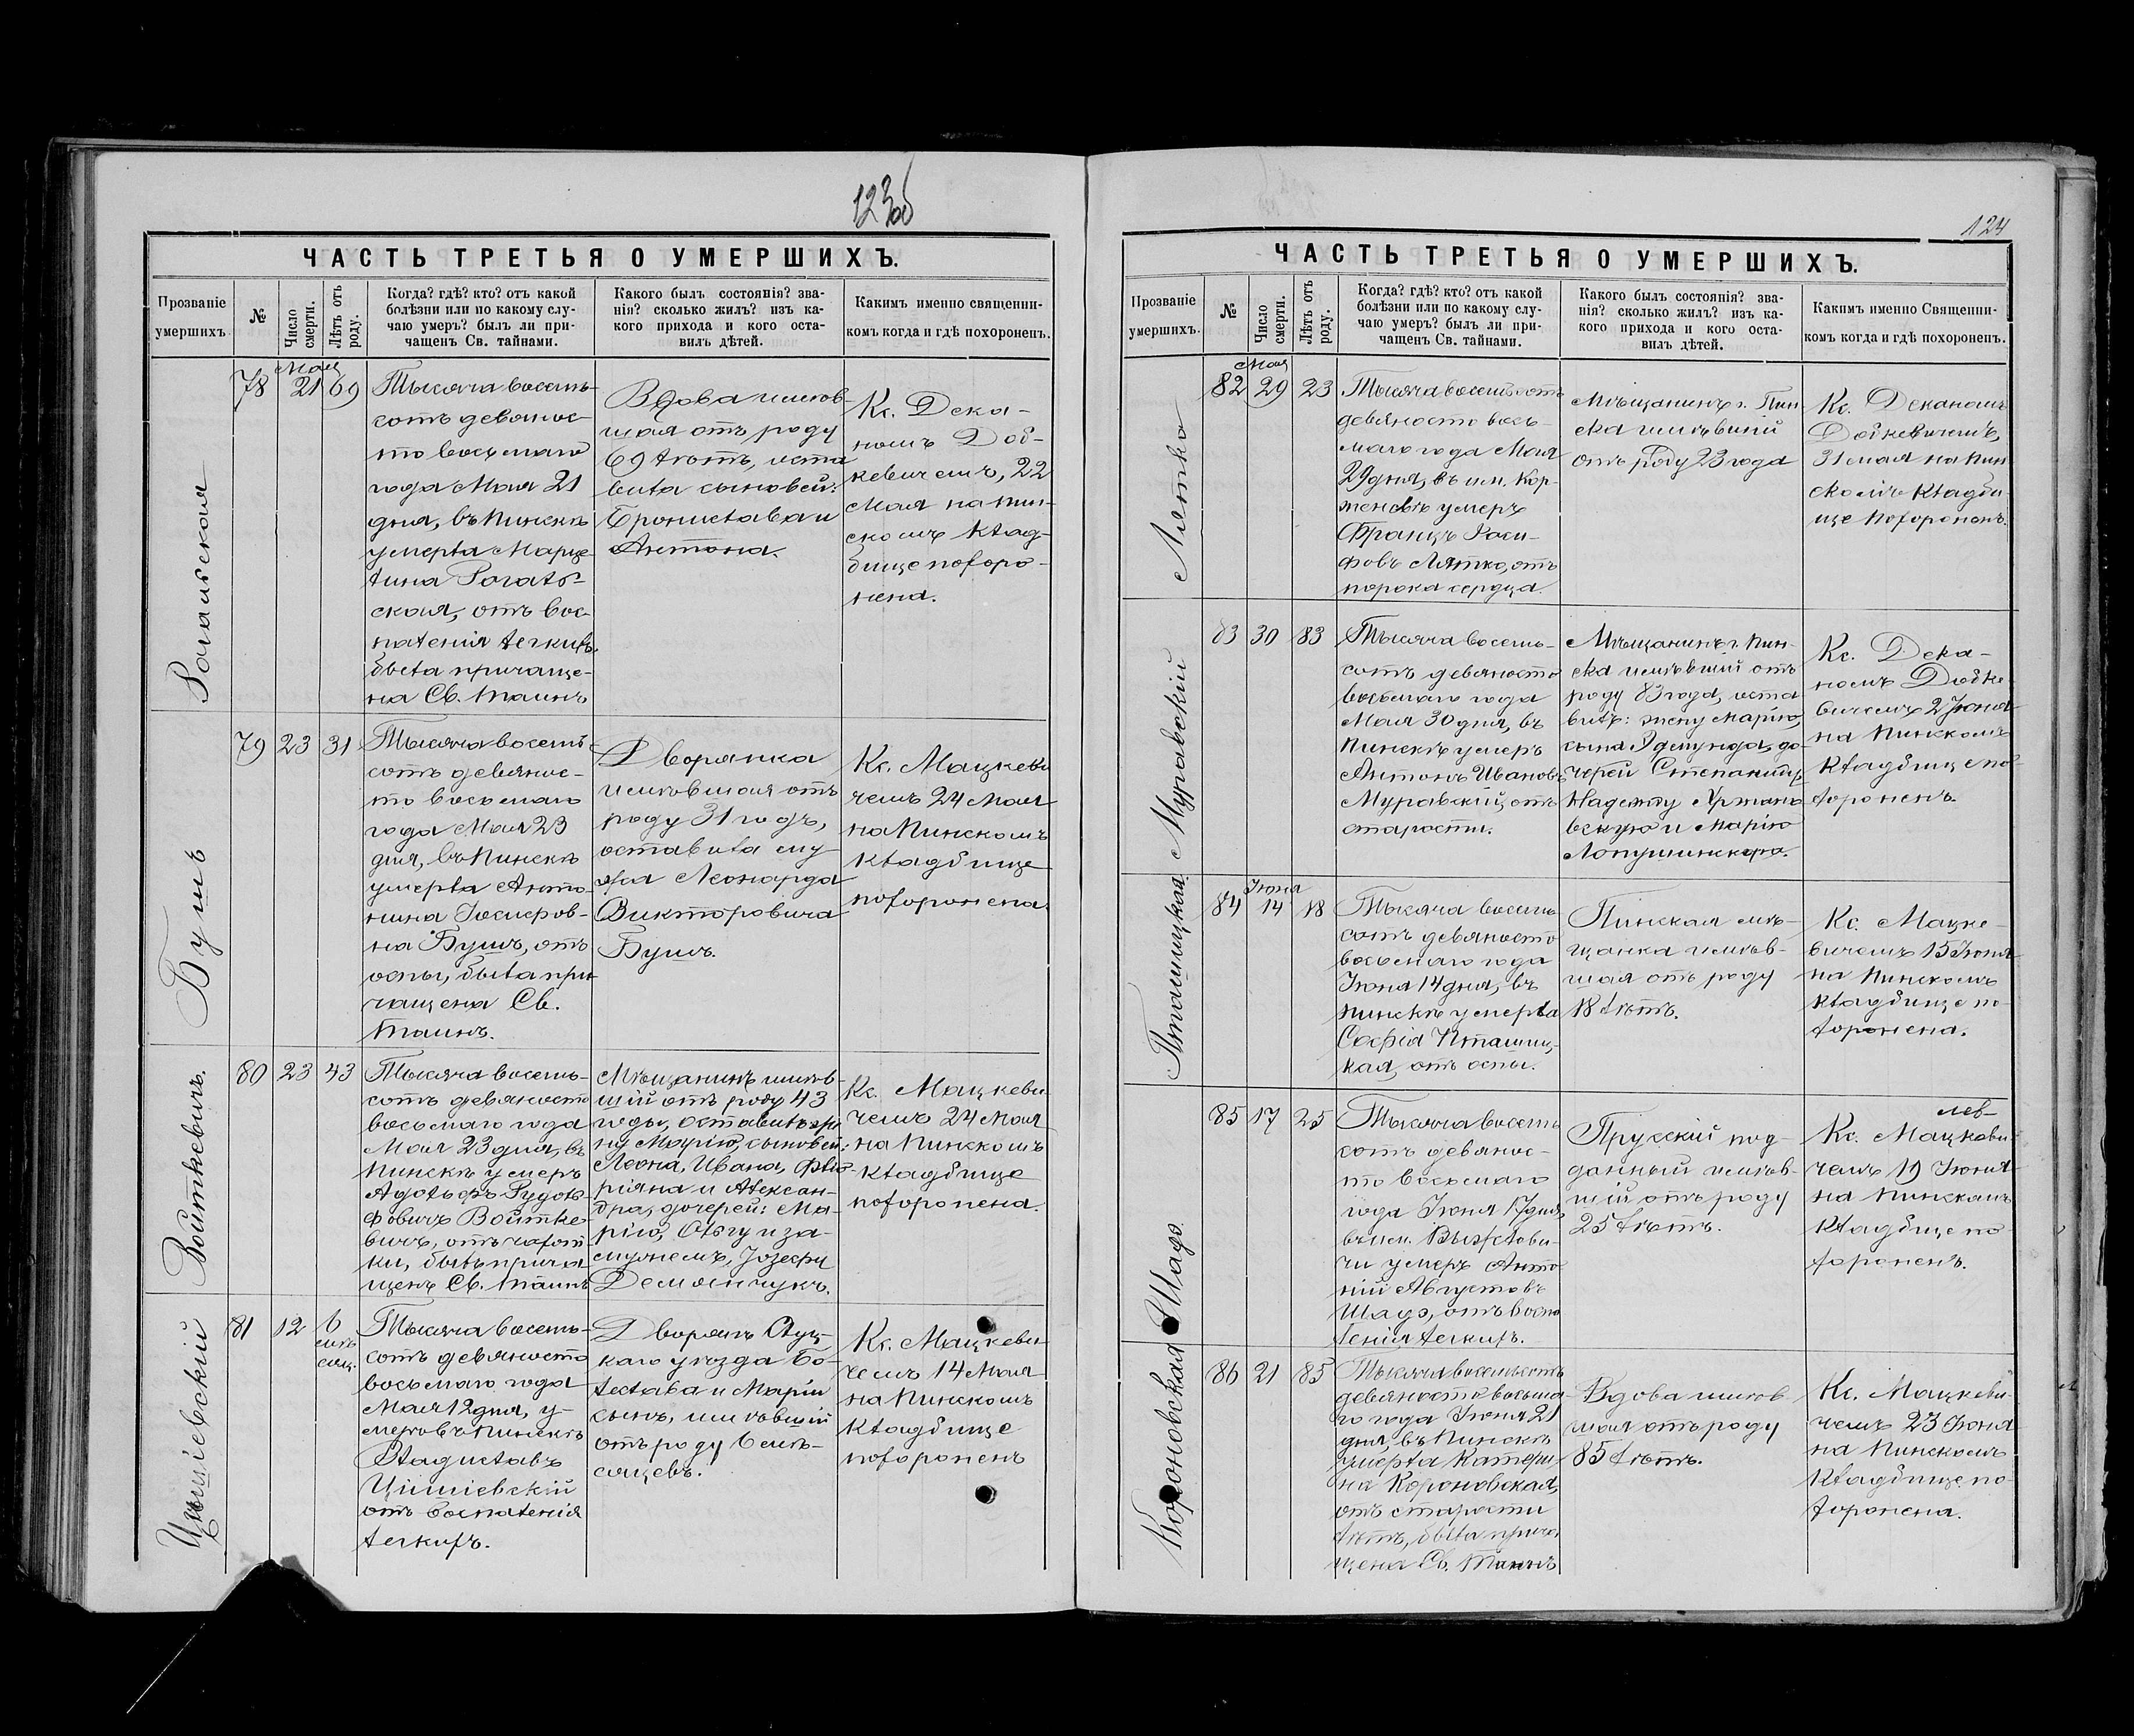 123об
ЧАСТЬ ТРЕТЬЯ О УМЕРШИХЪ.
Прозваніе умершихъ
№
Число смерти.
Лѣтъ отъ роду.
Когда? гдѣ? кто? отъ какой
болѣзни или по какому слу-
чаю умеръ? былъ ли при-
чащенъ Св. тайнами.
Какого былъ состоянія? зва-
нія? сколько жилъ? изъ ка-
кого прихода и кого оста-
вилъ дѣтей.
Какимъ именно священни-
комъ когда и гдѣ похороненъ.
Рогальская
78
Мая
21
69
Тысяча восемь-
сотъ девянос-
то восьмаго
года Мая 21
дня, въ Пинскѣ
умерла Марце-
лина Рогаль-
ская, отъ вос-
паленія легкихъ,
была причаще-
на Св. Таинъ
Вдова имѣв-
шая отъ роду
69 лѣтъ, оста
вила сыновей:
Бронислава и
Антона.
Кс. Дека-
номъ Доб-
кевичемъ, 22
Мая на Пин-
скомъ клад-
бище похоро-
нена.
Бушъ
79
23
31
Тысяча восемь
сотъ девянос-
то восьмаго
года Мая 23
дня, въ Пинскѣ
умерла Анто-
нина
на Бушъ, отъ
оспы, была при
чащена Св.
Таинъ.
Дворянка
имѣвшая отъ
роду 31 годъ,
оставила му
жа Леонарда
Викторовича
Бушъ.
Кс. Мацкеви
чемъ 24 Мая
на Пинскомъ
кладбище
похоронена.
Войткевичъ.
80
23
43
Тысяча восемь-
сотъ девяносто
восьмаго года
Мая 23 дня, въ
Пинскѣ умеръ
Адольфъ Рудоль-
фовичъ Войтке-
вичъ, отъ чахот-
ки, былъ прича
щенъ Св. Таинъ
Мѣщанинъ имѣв-
шій отъ роду 43
годы, оставилъ же
ну Марію, сыновей:
Леона, Ивана, Фло-
ріяна и Алексан-
дра, дочерей: Ма-
рію, Ольгу и за-
мужнемъ, Іозефу
Демянчукъ.
Кс. Мацкеви
чемъ 24 Мая
на Пинскомъ
кладбище
похоронена.
81
12
6
мѣ
сяц.
Тысяча восемь-
сотъ девяносто
восьмаго года
Мая 12 дня, у-
меръ въ Пинскѣ
Владиславъ
отъ воспаленія
легкихъ.
Дворянъ Слуц-
каго уѣзда Бо-
леслава и Маріи
сынъ, имѣвшій
отъ роду 6 мѣ-
сяцевъ.
Кс. Мацкеви-
чемъ 14 Мая
на Пинскомъ
кладбище
похороненъ
124
ЧАСТЬ ТРЕТЬЯ О УМЕРШИХЪ.
Прозваніе умершихъ.
№
Число смерти.
Лѣтъ отъ роду.
Когда? гдѣ? кто? отъ какой
болѣзни или по какому слу-
чаю умеръ? былъ ли при-
чащенъ Св. тайнами.
Какого былъ состоянія? зва-
нія? сколько жилъ? изъ ка-
кого прихода и кого оста-
вилъ дѣтей.
Какимъ именно Священни-
комъ когда и гдѣ похороненъ.
Лятко
82
Мая
29
23
Тысяча восемьсотъ
девяносто вось-
маго года Мая
29 дня, въ им. Кор-
женевѣ умеръ
Францъ Іоси-
фовъ Лятко, отъ
порока сердца.
Мѣщанинъ г. Пин-
ска имѣвшій
отъ роду 23 года
Кс. Деканомъ
Добкевичемъ,
31 мая на Пин
скомъ кладби-
ще похороненъ.
Муравскій
83
30
83
Тысяча восемь-
сотъ девяносто
восьмаго года
Мая 30 дня, въ
Пинскѣ умеръ
Антонъ Ивановъ
Муравскій, отъ
старости.
Мѣщанинъ г. Пин-
ска имѣвшій отъ
роду 83 года, оста
вилъ: жену Марію,
сына Эдмунда, до-
черей Степаниду,
Надежду Хржано
вскую и Марію
Кс. Дека-
номъ Добке
вичемъ 2 Іюня
на Пинскомъ
кладбище по
хороненъ.
Пташицкая
84
Іюня
14
18
Тысяча восемь
сотъ девяносто
восьмаго года
Іюня 14 дня, въ
Пинскѣ умерла
Софія Пташиц-
кая, отъ оспы.
Пинская мѣ-
щанка имѣв-
шая отъ роду
18 лѣтъ.
Кс. Мацке-
вичемъ 15 Іюня
на Пинскомъ
кладбище по-
хоронена.
Шадо
85
17
25
Тысяча восемь
сотъ девянос-
то восьмаго
года Іюня 17 дня,
въ им.
чи умеръ Анто
ній Августовъ
Шадо, отъ воспа
ленія легкихъ.
Прусскій под-
данный имѣв-
шій отъ роду
25 лѣтъ.
Кс. Мацкеви
чемъ 19 Іюня
на Пинскомъ
кладбище по
хороненъ.
Короновская
86
21
85
Тысяча восемьсотъ
девяносто восьма-
го года Іюня 21
дня, въ Пинскѣ
умерла Катери
на Короновская,
отъ старости
лѣтъ, была прича
щена Св. Таинъ
Вдова имѣв
шая отъ роду
85 лѣтъ.
Кс. Мацкеви
чемъ 23 Іюня
на Пинскомъ
кладбище по
хоронена.